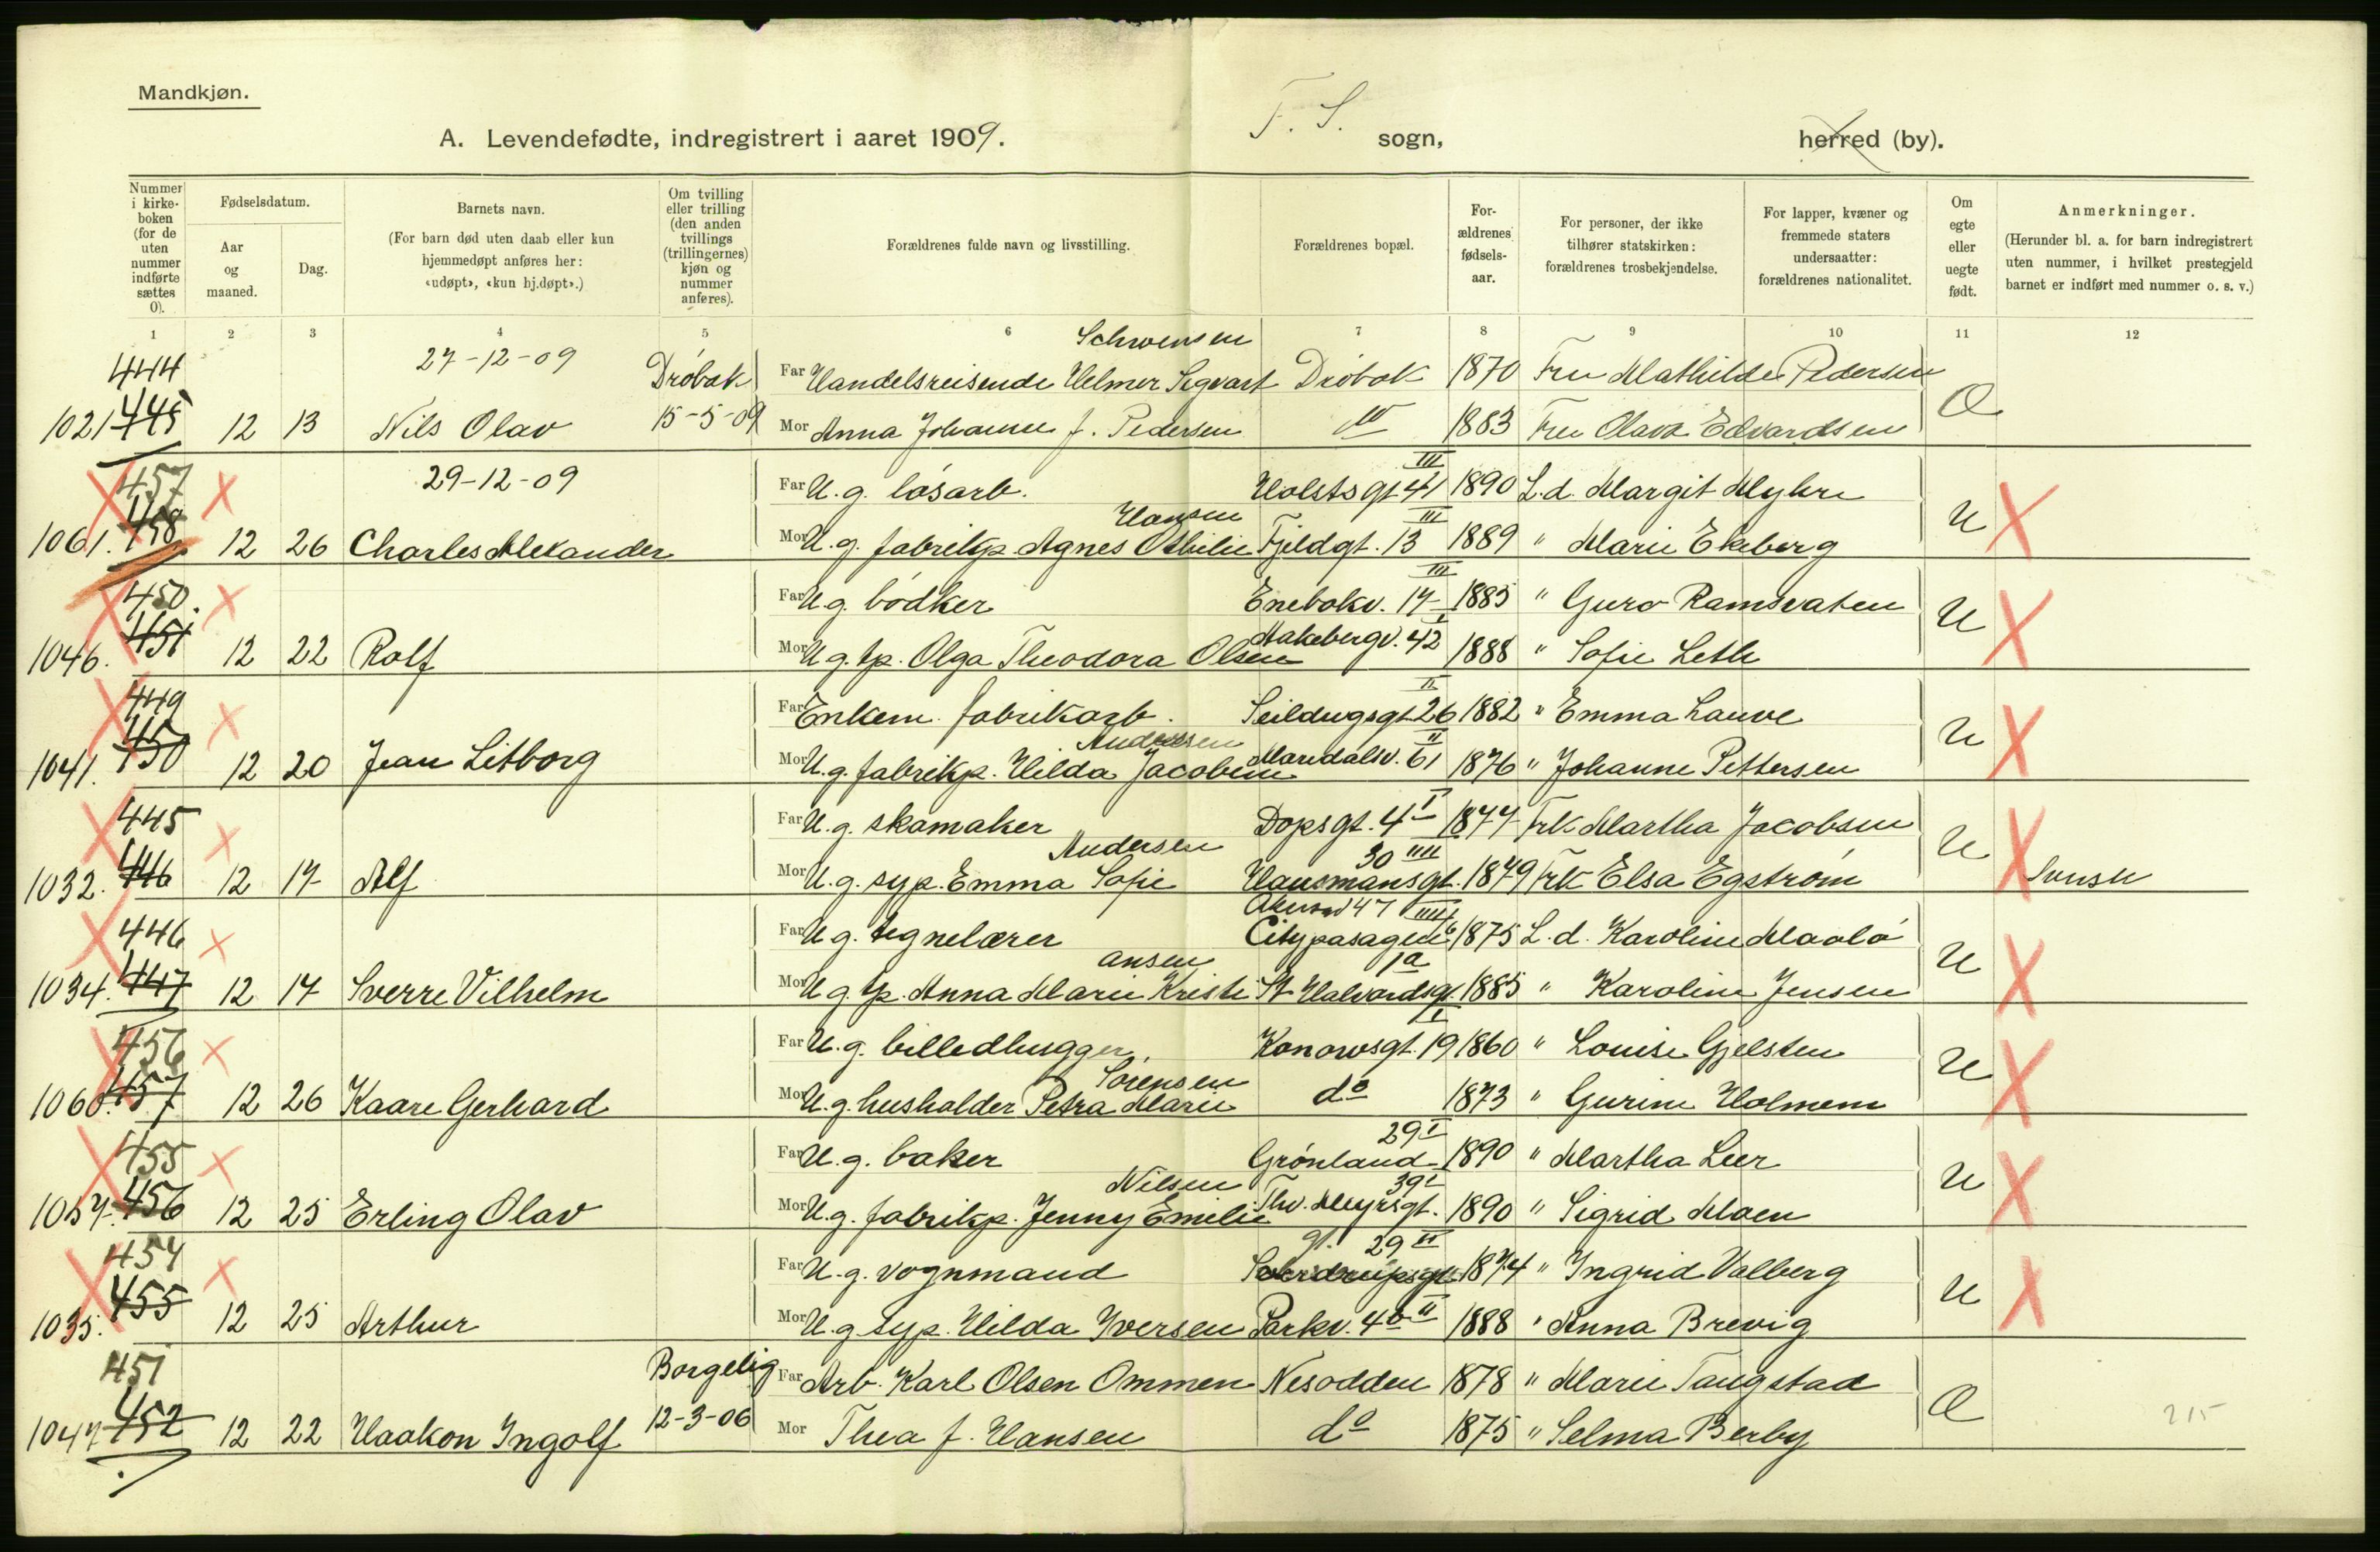 Mandkjøn.
A. Levendefødte, indregistrert i aaret 1909. F. S. sogn, herred (by).
Nummer i kirke- boken (for de uten nummer indførte sættes 0).
Fødselsdatum.
Aar og maaned.
Dag.
Barnets navn.
(For barn død uten daab eller kun hjemmedøpt anføres her: «udøpt», «kun hj.døpt».)
Om tvilling eller trilling (den anden tvillings (trillingernes) kjøn og nummer anføres).
Forældrenes fulde navn og livsstilling.
Forældrenes bopæl.
For- ældrenes fødsels- aar.
For personer, der ikke tilhører statskirken: forældrenes trosbekjendelse.
For lapper, kvæner og fremmede staters undersaatter: forældrenes nationalitet.
Om egte eller uegte født.
Anmerkninger.
(Herunder bl. a. for barn indregistrert uten nummer, i hvilket prestegjeld barnet er indført med nummer o. s. v.)
1 2 3 4 5 6 7 8 9 10 11 12
444 27-12-09 Drøbak Far Handelsreisende Helmer Sigvart Schwensen Drøbak 1870 Fru Mathilde Pedersen
1021 445 12 13 Nils Olav 15-5-09 Mor Anna Johanne f. Pedersen " 1883 Fru Olava Edvardsen
457 29-12-09 Far U. g. løsarb. Holstsgt 41 III 1890 L.d. Margit Myhre
1061. 458 12 26 Charles Alexander Mor U. g. fabrikp. Agnes Othilie Hansen Fjeldgt. 13 III 1889 " Marie Ekeberg U
450 Far U g. bødker Enebakv. 17 III 1885 " Guro Ramsvaten
1046. 451 12 22 Rolf Mor U g. tp. Olga Theodora Olsen Hakebergv. 42 I 1888 " Sofie Leth U
449 Far Enkem. fabrikarb. Seildugsgt 26 II 1882 " Emma Lauve
1041. 450 12 20 Jean Litborg Mor U. g. fabrikp. Hilda Jacobine Andersen Maridalsv. 61 II 1876 " Johanne Pettersen U
445 Far U. g. skomaker Dopsgt. 4 I 1877 Frk Martha Jacobsen
1032. 446 12 17 Alf Mor U. g. syp. Emma Sofie Andersen Hausmansgt. 30 IIII 1879 Frk Elsa Egstrøm U Svensk
446 Far U g. tegnelærer Citypasagen 1875 L. d. Karoline Maalø
1034. 447 12 17 Sverre Vilhelm Mor U g. tp. Anna Marie Kristiansen St Halvardsgt. 1a 1885 " Karoline Jensen U
456 Far U. g. billedhugger Konowsgt. 19 I 1860 " Louise Gjelsten
1060. 457 12 26 Kaare Gerhard Mor U. g. husholder Petra Marie Sørensen do 1873 " Gurine Holmem U
455 Far U. g. baker Grønland 29 I 1890 " Martha Lier
1057. 456 12 25 Erling Olav Mor U. g. fabrikp. Jenny Emilie Nilsen Thv. Meyrsgt. 39 I 1890 " Sigrid Moen U
454 Far U. g. vognmand Sverdrupsgt. 29 II 1874 " Ingrid Valberg
1035. 455 12 25 Arthur Mor U. g. syp. Hilda Iversen Parkv. 4b II 1888 " Anna Brevig U
451 Borgelig Far Arb. Karl Olsen Ommen Nesodden 1878 " Marie Tangstad
1047 452 12 22 Haakon Ingolf 12-3-06 Mor Thea f. Hansen do 1875 " Selma Berby
215